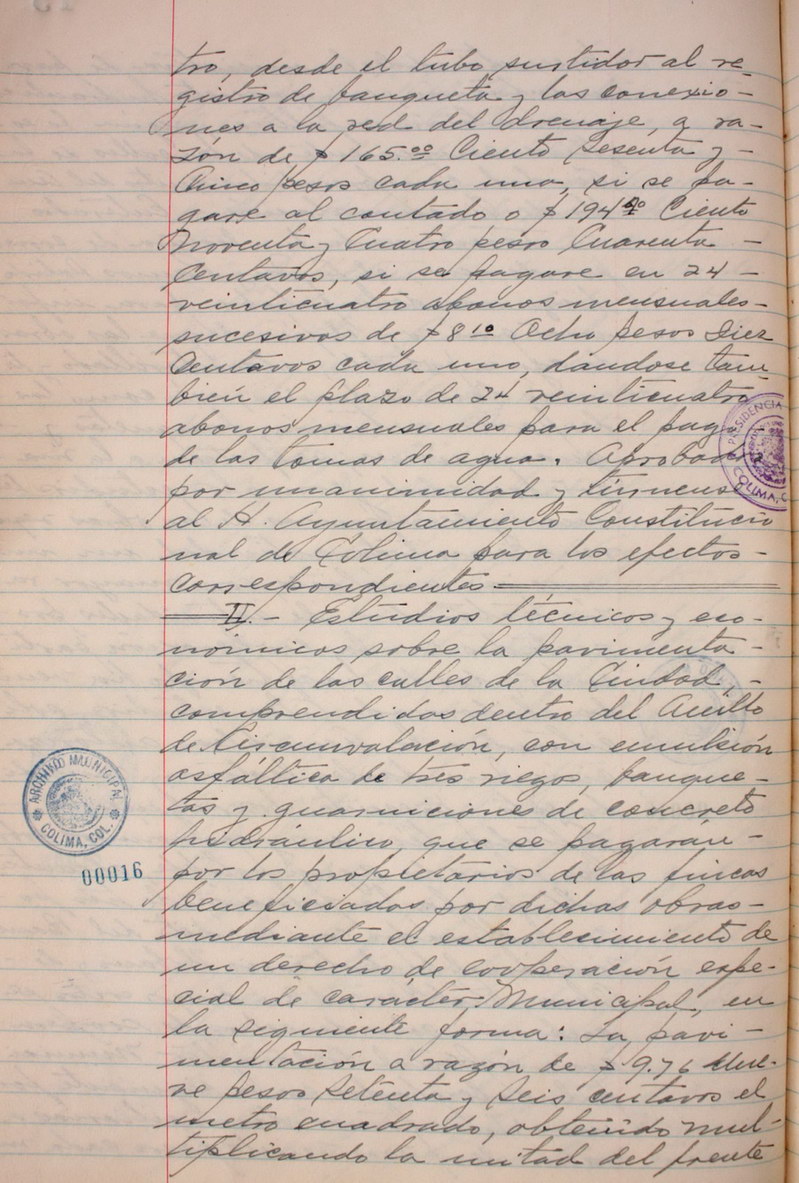 tro, desde el tubo surtidor al re-
gistro de banqueta y las conexio-
nes a la red del drenaje, a ra-
zón de $165.00 Ciento Sesenta y -
Cinco pesos cada una, si se pa-
gare al contado o $194.40 Ciento
Noventa y Cuatro pesos Cuarenta -
Centavos, si se pagare en 24 -
veinticuatro abonos mensuales -
sucesivos de $8.10 Ocho pesos Diez
Centavos cada uno, dandose tam
bién el plazo de 24 veinticuatro
abonos mensuales para el pago
de las tomas de agua. Aprobado
por unanimidad y túrnense
al H. Ayuntamiento Constitucio
nal de Colima para los efectos -
correspondientes
II.- Estudios técnicos y eco-
nómicos sobre la pavimenta -
ción de las calles de la Ciudad, -
comprendidas dentro del Anillo
de Circunvalación, con emulsión
asfáltica de tres riegos, banque-
tas y guarniciones de concreto
hidráulico, que se pagarán -
por los propietarios de las fincas
beneficiadas por dichas obras -
mediante el establecimiento de
un derecho de cooperación espe-
cial de carácter Municipal, en
la siguiente forma: La pavi -
mentación a razón de $9.76 Nue-
ve pesos Setenta y Seis centavos el
metro cuadrado, obtenido mul-
tiplicando la mitad del frente
PRESIDENCIA
COLIMA, C
ARCHIVO MUNICIPAL
COLIMA, COL.
00016